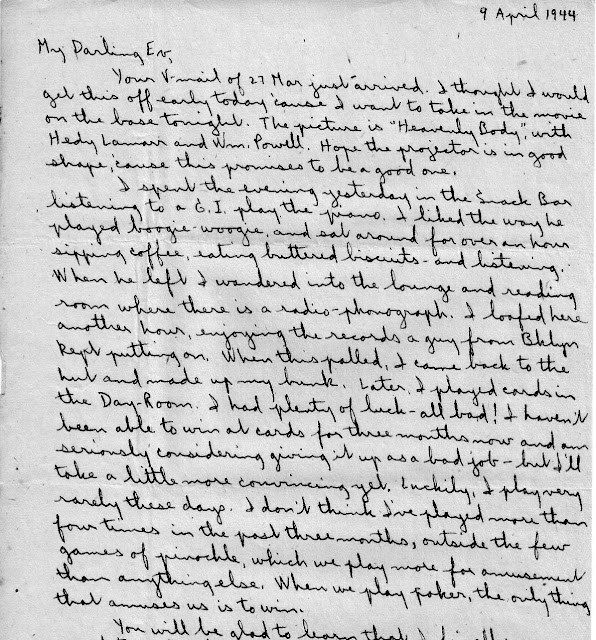 9 April 1944
My Darling Ev,
Your V-mail of 27 Mar just arrived. I thought I would
get this off early today 'cause I want to take in the movie
on the base tonight. The picture is "Heavenly Body", with
Hedy Lamarr and Wm. Powell. Hope the projector is in good
shape, 'cause this promises to be a good one.
I spent the evening yesterday in the Snack Bar
listening to a G.I. play the piano. I liked the way he
played boogie-woogie, and sat around for over an hour
sipping coffee, eating buttered biscuits - and listening.
When he left I wandered into the lounge and reading
room where there is a radio-phonograph. I loafed here
another hour, enjoying the records a guy from Bklyn
kept putting on. When this palled, I came back to the
hut and made up my bunk. Later, I played cards in
the Day-Room. I had plenty of luck - all bad! I haven't
been able to win at cards for three months now and am
seriously considering giving it up as a bad job - but I'll
take a little more convincing yet. Luckily, I play very
rarely these days. I don't think I've played more than
four times in the past three months, outside the few
games of pinochle, which we play more for amusement
than anything else. When we play poker, the only thing
that amuses us is to win.
You will be glad to learn that I